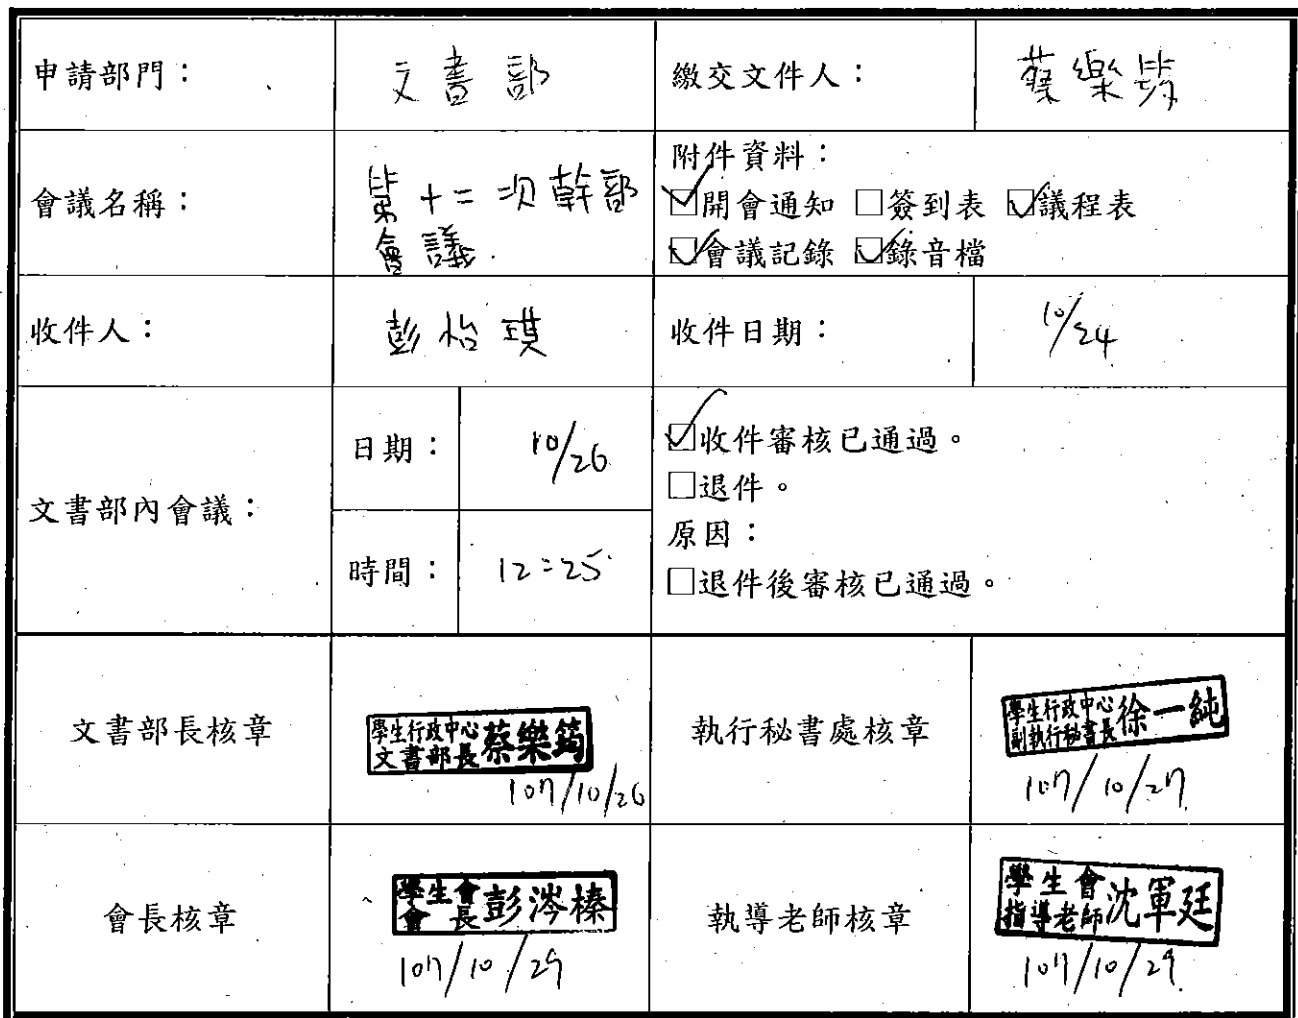 申請部門：
文書部
繳交文件人：
蔡樂筠
會議名稱：
第十二次幹部
會議.
附件資料：
☑開會通知 □簽到表 ☑議程表
☑會議記錄 ☑錄音檔
收件人：
彭怡琪
收件日期：
10/24
文書部內會議：
日期：
10/26
時間：
12:25
☑收件審核已通過。
□退件。
原因：
□退件後審核已通過。
文書部長核章
學生行政中心
文書部長
蔡樂筠
107/10/26
執行秘書處核章
學生行政中心
副執行秘書長
徐一純
107/10/27
會長核章
學生會
會長
彭涔榛
107/10/29
執導老師核章
學生會
指導老師
沈軍廷
107/10/29